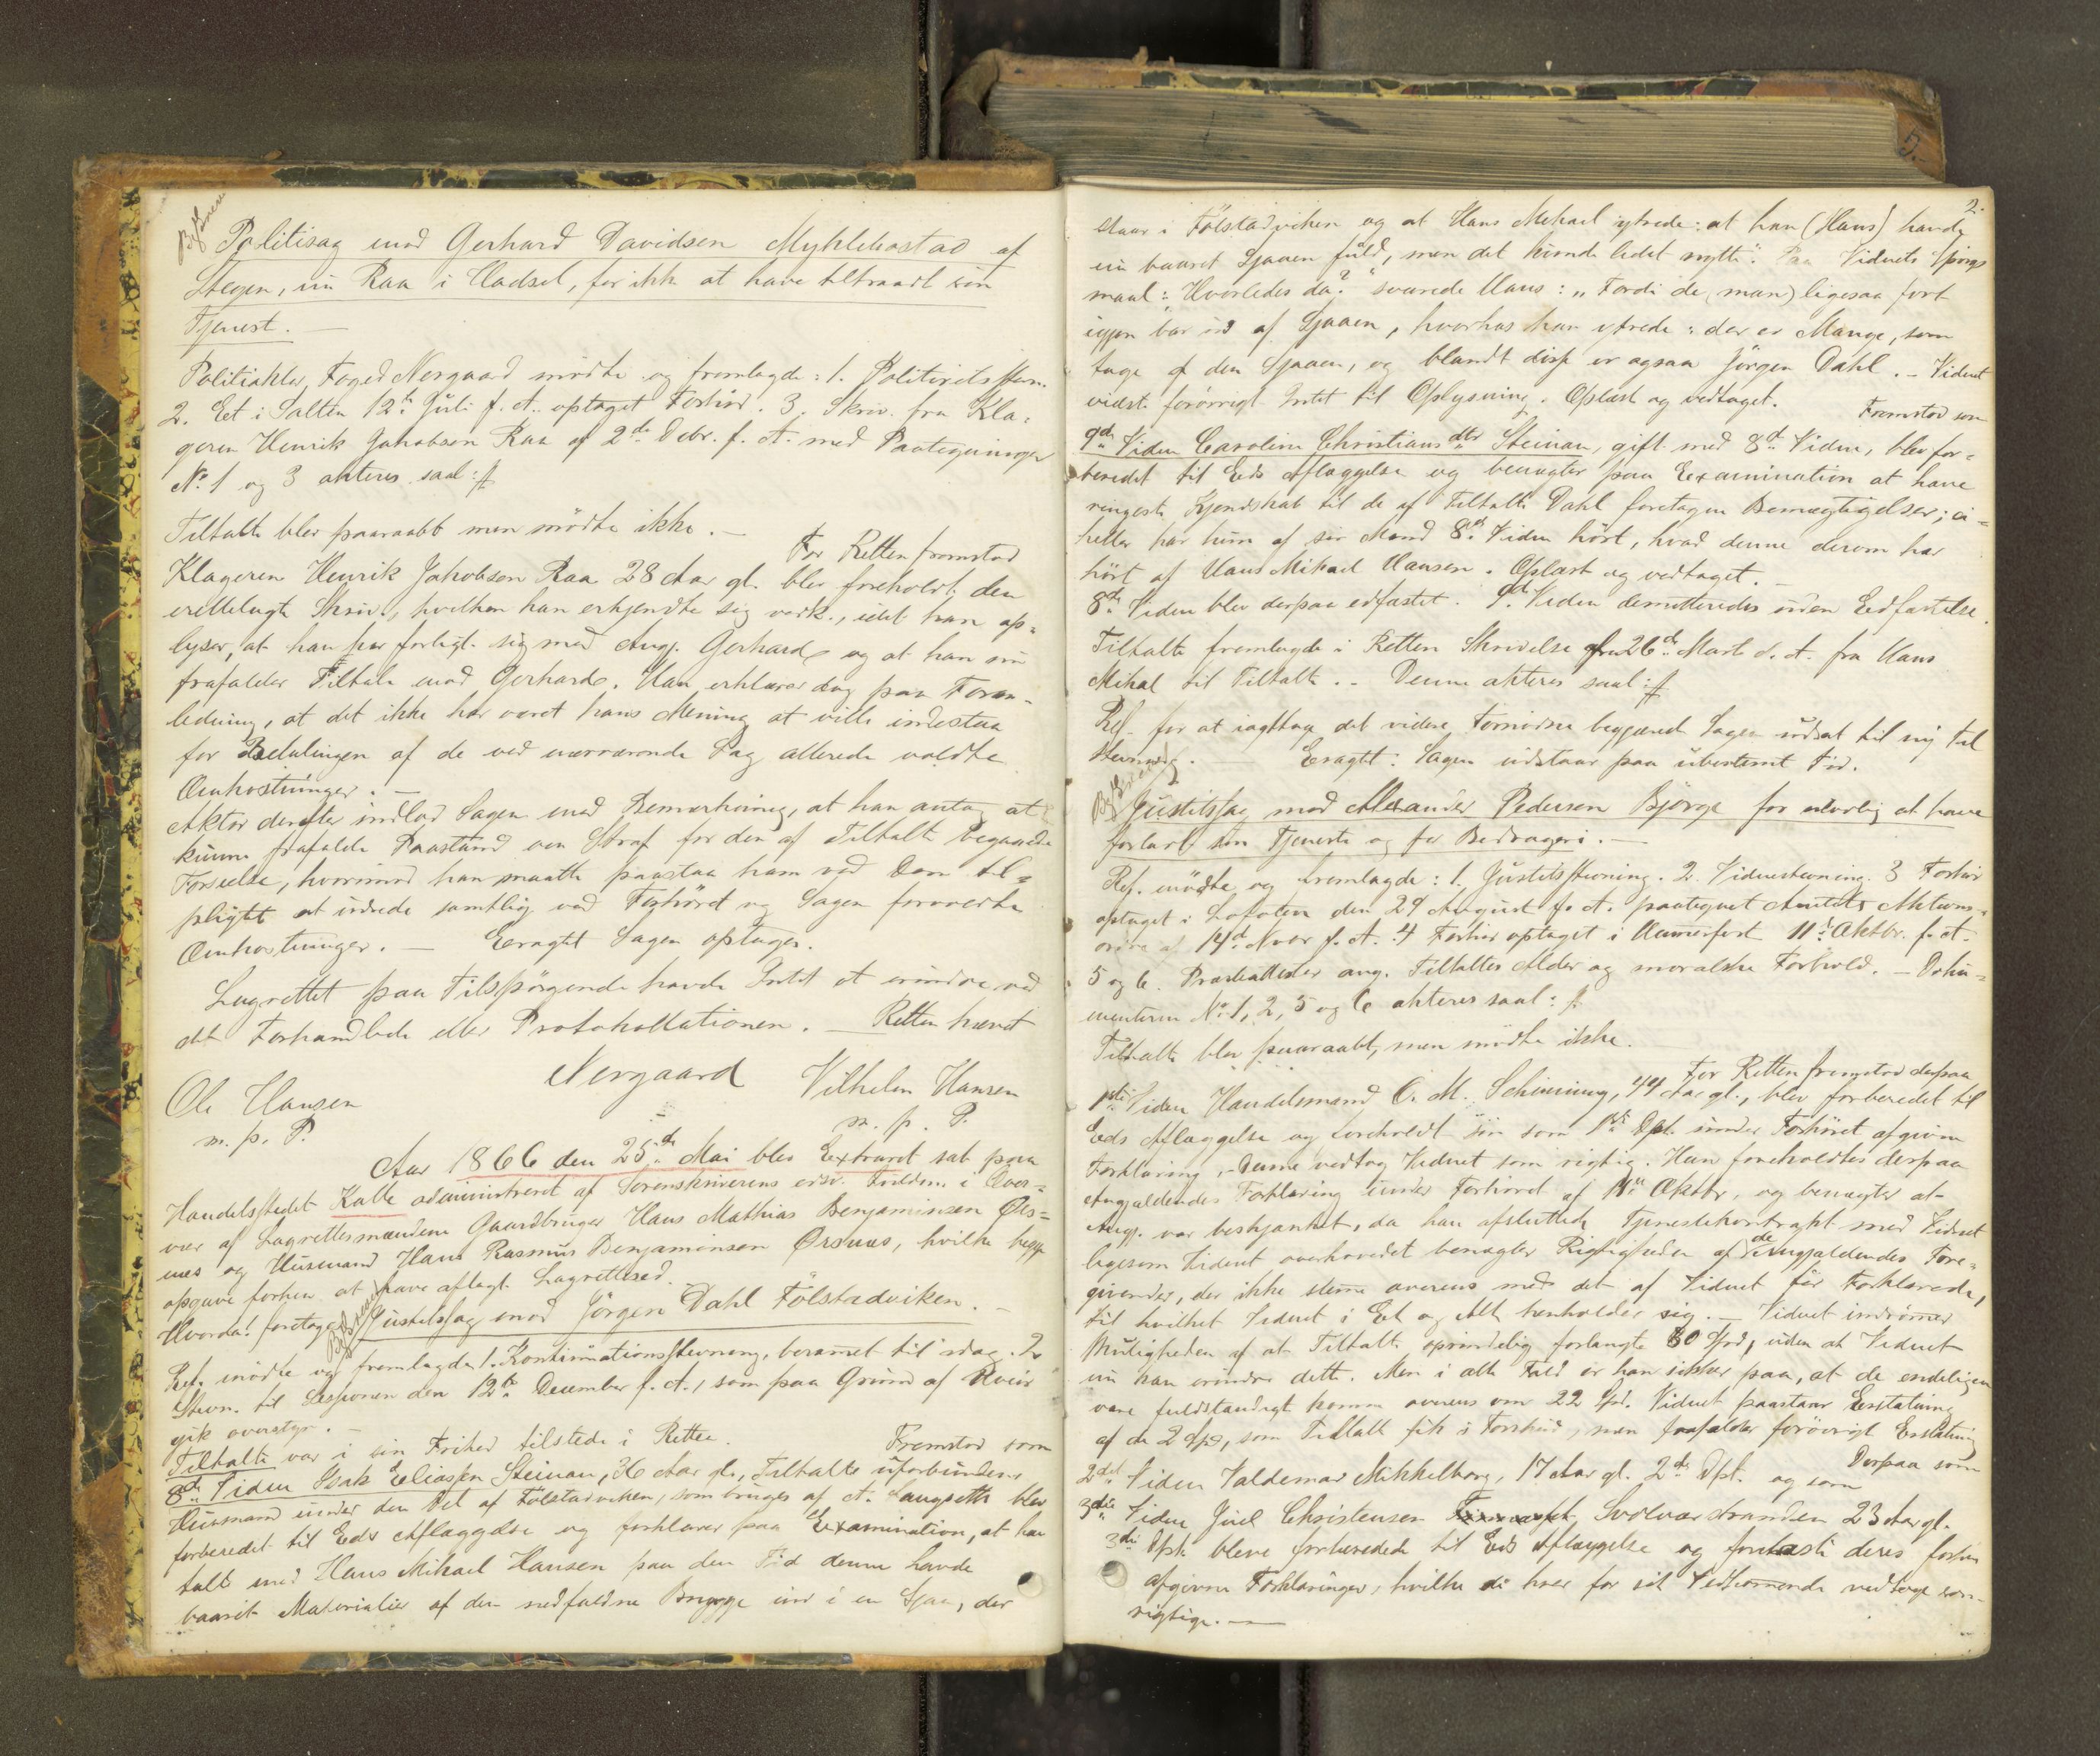 Politisag mod Gerhard Davidsen Myklebostad af
Stegen, nu Raa i Hadsel, for ikke at have tiltraadt sin
Tjenest.
Politiaktor, Foged Norgaard mødte og fremlagde: 1. Politiretsstevn.
2. Et i Salten 12te Juli f. A. optaget Forhør. 3. Skriv. fra Kla-
geren Henrik Jakobsen Raa af 2de Debr. f. A. med Paategninger
No 1 og 3 akteres saal:
Tiltalte blev paaraabt men mødte ikke. –
For Retten fremstod
Klageren Henrik Jakobsen Raa 28 Aar gl. blev foreholdt den
irettelagte Skriv., hvilken han erkjendte sig vedk., idet han op-
lyser, at han har forligt sig med Ang. Gerhard og at han nu
frafalder Tiltale mod Gerhard. Han erklærer dog paa Foran-
ledning, at det ikke har været hans Mening at ville indestaa
for Betalingen af de ved nærværende Sag allerede voldte
Omkostninger. –
Aktor derefter indlod Sagen med Bemærkning, at han antog at
kunne frafalde Paastand om Straf for den af Tiltalte begaaede
Forseelse, hvorimod han maatte paastaa ham ved Dom til-
pligtet at udrede samtlige ved Forhøret og Sagen foranledte
Omkostninger. – Eragtet Sagen optages.
Lagrettet paa Tilspørgende havde Intet at erindre ved
det Forhandlede eller Protokollationen. – Retten hævet
Norgaard
Ole Hansen
m. p. P.
Vilhelm Hansen
m. p. P.
Aar 1866 den 25de Mai blev Extraret sat paa
Handelsstedet Kalle administreret af Sorenskriverens edsv. Fuldm. i Over-
vær af Lagrettesmændene Gaardbruger Hans Mathias Benjaminsen Ørs-
nes og Husmand Hans Rasmus Benjaminsen Ørsnes, hvilke begge
opgave forhen at have aflagt Lagretteseed.
Hvorda: foretoges Justitssag mod Jørgen Dahl Følstadviken. –
Ref. mødte og fremlagde 1. Kontinuationsstevning, beramet til idag. 2
Stevn. til Sessionen den 12te December f. A., som paa Grund af Veir
gik overstyr. –
Tiltalte var i sin Frihed tilstede i Retten.
Fremstod som
8de Viden Isak Eliassen Steinan, 36 Aar gl., Tiltalte uforbunden
Husmand under den Del af Følstadviken, som bruges af A. Laugseth blev
forberedet til Eds Aflæggelse og forklarer paa Examination, at han
talte med Hans Mikael Hansen paa den Tid denne havde
baaret Materialier af den nedfaldne Brygge ind i en Sjaa, der
2.
staar i Følstadviken og at Hans Mikael ytrede: at han (Hans) havde
nu baaret Sjaaen fuld, men det kunde lidet nytte." Paa Vidnets Spørgs
maal: "Hvorledes da?" svarede Hans: "Fordi de (man) ligesaa fort
igjen bar ud af Sjaaen, hvorhos han ytrede: der er Mange, som
tage af den Sjaaen, og blandt disse er ogsaa Jørgen Dahl. – Vidnet
vidste forøvrigt Intet til Oplysning. Oplæst og vedtaget.
Fremstod som
9de Viden Caroline Christiansdtr Steinan, gift med 8de Viden, blev for-
beredet til Eds Aflæggelse og benægter paa Examination at have
ringeste Kjendskab til de af Tiltalte Dahl foretagne Bemægtigelser; ei-
heller har hun af sin Mand 8de Viden hørt, hvad denne derom har
hørt af Hans Mikael Hansen. Oplæst og vedtaget. –
8de Viden blev derpaa edfæstet. 9de Viden demitteredes uden Edfæstelse.
Tiltalte fremlagde i Retten Skrivelse af 26de Marts d. A. fra Hans
Mikal til Tiltalte. – Denne akteres saal:
Ref. for at iagttage det videre Fornødne begjærede Sagen udsat til ny til
Stevning. – Eragtet: Sagen udstaar paa ubestemt Tid.
Justitssag mod Alexander Pedersen Bjørge for ulovlig at have
forladt sin Tjeneste og for Bedrageri. –
Ref. mødte og fremlagde: 1. Justitsstevning. 2. Vidnestevning. 3 Forhør
optaget i Lofoten den 29 August f. A. paategnet Amtets Aktions-
ordre af 14de Novbr f. A. 4 Forhør optaget i Hammerfest 11te Oktbr. f. A.
5 og 6. Præsteattester ang. Tiltaltes Alder og moralske Forhold. – Doku-
menterne No 1, 2, 5 og 6 akteres saal:
Tiltalte blev paaraabt, men mødte ikke.
For Retten fremstod derpaa
1ste Viden Handelsmand C. M. Schinning, 44 Aar gl., blev forberedet til
Eds Aflæggelse og foreholdt sin som 1ste Dpt. under Forhøret afgivne
Forklaring, – Denne vedtog Vidnet som rigtig. Han foreholdtes derpaa
Angjældendes Forklaring under Forhøret af 11te Oktbr, og benægter at
Ang. var beskjænket, da han afsluttede Tjenestekontrakt med Vidnet
ligesom Vidnet overhovedet benægter Rigtigheden af de Angjældendes Fore-
givender, der ikke stemme overens med det af Vidnet før Forklarede,
til hvilket Vidnet i Et og Alt henholder sig. – Vidnet indrømmer
Muligheden af at Tiltalte oprindelig forlangte 30 Spd, uden at Vidnet
nu kan erindre dette. Men i alt Fald er han sikker paa, at de endeligen
vare fuldstændigt komne overens om 22 Spd. Vidnet paastaar Erstatning
af de 2 Spd, som Tiltalte fik i Forskud, men frafalder forøvrigt Erstatning
Derpaa som
2det Viden Valdemar Mikkelborg, 17 Aar gl. 2de Dpt. og som
3die Viden Juel Christensen Svolværstranden 23 Aar gl.
3die Dpt. bleve forberedede til Eds Aflæggelse og forelæste deres forhen
afgivne Forklaringer, hvilke de hver for sit Vedkommende vedtoge som
rigtige. –